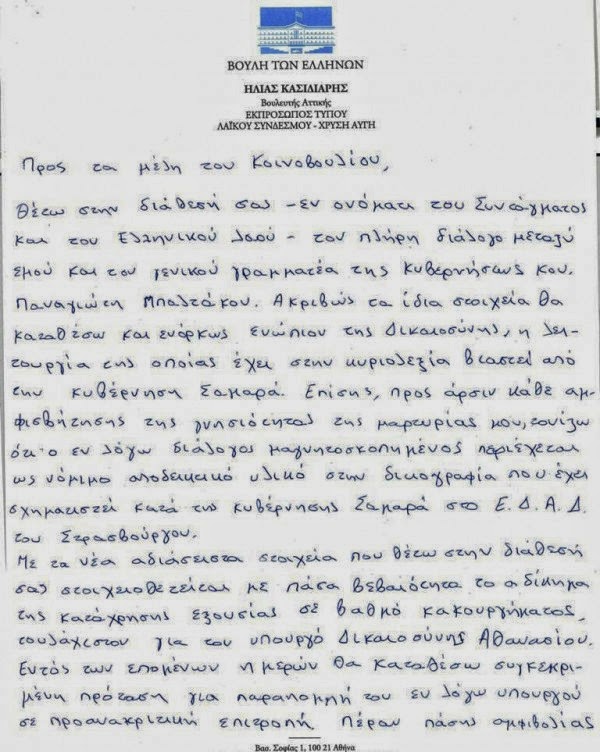 ΒΟΥΛΗ ΤΩΝ ΕΛΛΗΝΩΝ
ΗΛΙΑΣ ΚΑΣΙΔΙΑΡΗΣ
Βουλευτής Αττικής
ΕΚΠΡΟΣΩΠΟΣ ΤΥΠΟΥ
ΛΑΪΚΟΥ ΣΥΝΔΕΣΜΟΥ - ΧΡΥΣΗ ΑΥΓΗ
Προς τα μέλη του Κοινοβουλίου,
Θέτω στην διάθεσή σας - εν ονόματι του Συντάγματος
και του Ελληνικού Λαού - τον πλήρη διάλογο μεταξύ
εμού και του γενικού γραμματέα της κυβερνήσεως κου.
Παναγιώτη Μπαλτάκου. Ακριβώς τα ίδια στοιχεία θα
καταθέσω και ενόρκως ενώπιον της Δικαιοσύνης, η λει-
τουργία της οποίας έχει στην κυριολεξία βιαστεί από
την κυβέρνηση Σαμαρά. Επίσης, προς άρσιν κάθε αμ-
φισβήτησης της γνησιότητας της μαρτυρίας μου, τονίζω
ότι ο εν λόγω διάλογος μαγνητοσκοπημένος περιέχεται
ως νόμιμο αποδεικτικό υλικό στην δικογραφία που έχει
σχηματιστεί κατά της κυβέρνησης Σαμαρά στο Ε.Δ.Α.Δ.
του Στρασβούργου.
Με τα νέα αδιάσειστα στοιχεία που θέτω στην διάθεσή
σας στοιχειοθετείται με πάσα βεβαιότητα το αδίκημα
της κατάχρησης εξουσίας σε βαθμό κακουργήματος,
τουλάχιστον για τον υπουργό Δικαιοσύνης Αθανασίου.
Εντός των επομένων ημερών θα καταθέσω συγκεκρι-
μένη πρόταση για παραπομπή του εν λόγω υπουργού
σε προανακριτική επιτροπή. Πέραν πάσης αμφιβολίας
Βασ. Σοφίας 1, 100 21 Αθήνα